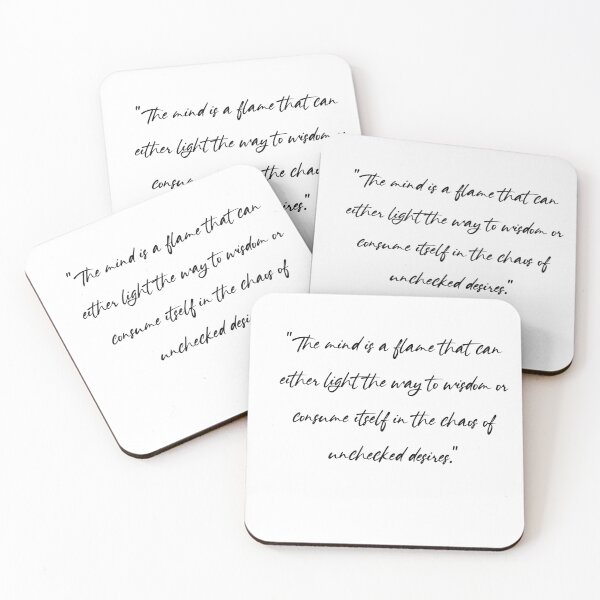 "The mind is a flame that can
either light the way to wisdom
the
"The mind is a flame that can
either light the way to wisdom or
consume itself in the chaos of
unchecked desires."
"The mind is a flame that can
either light the way to wisdom or
consume itself in the chaos of
unchecked
"The mind is a flame that can
either light the way to wisdom or
consume itself in the chaos of
unchecked desires."